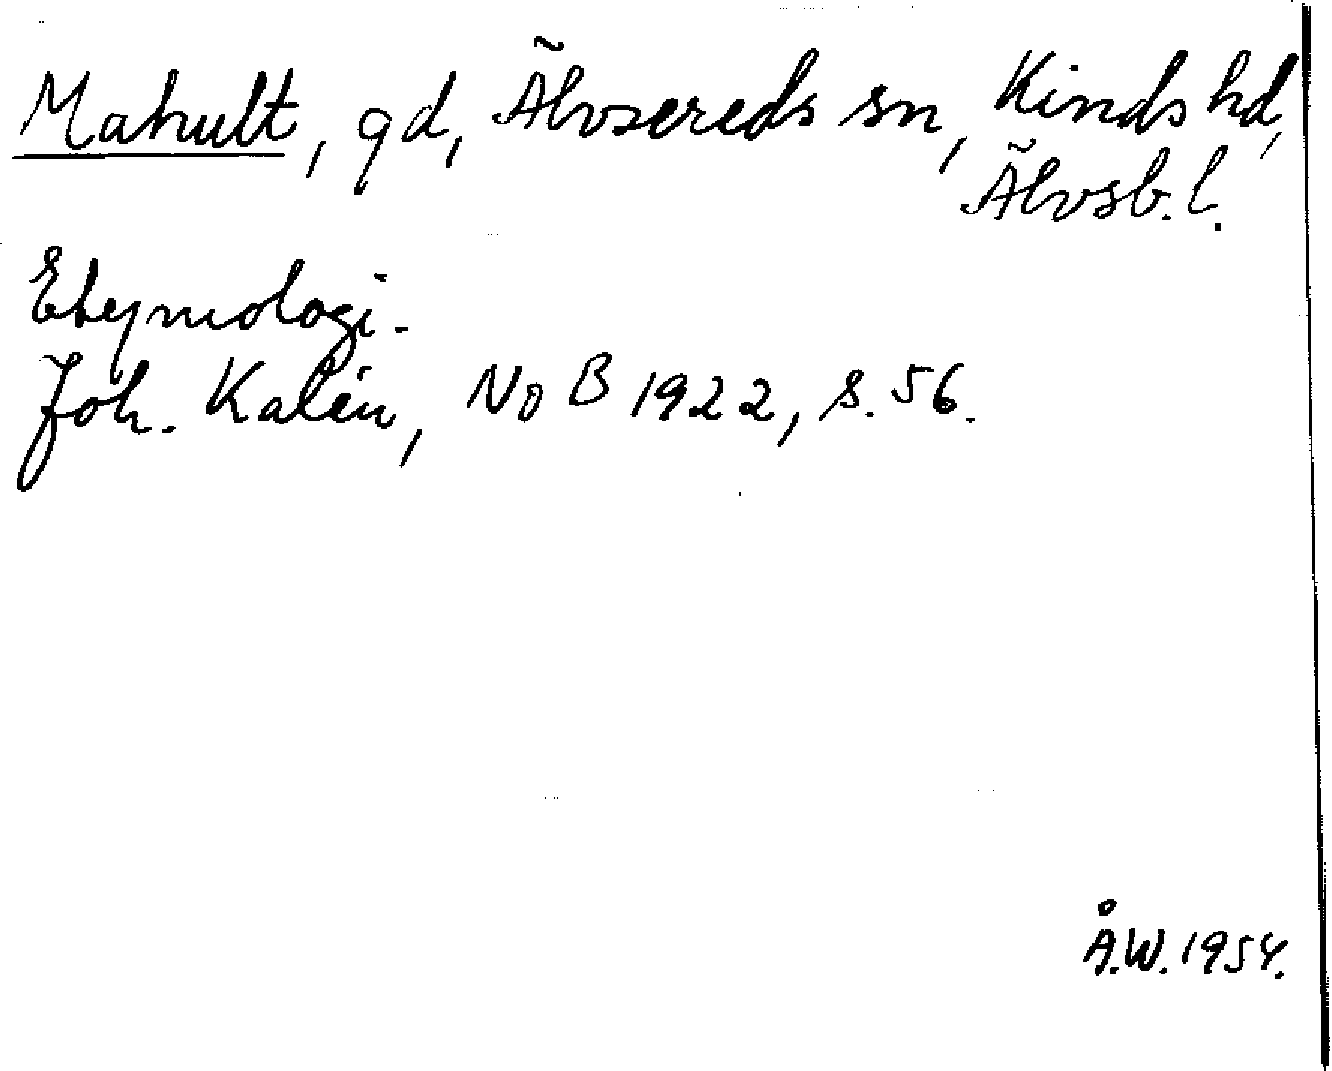 Mahult, gd, Älvsereds sn, Kinds hd,
Älvsb. l.
Etymologi.
Joh. Kalén, NoB 1922, s. 56.
Å.W. 1954.